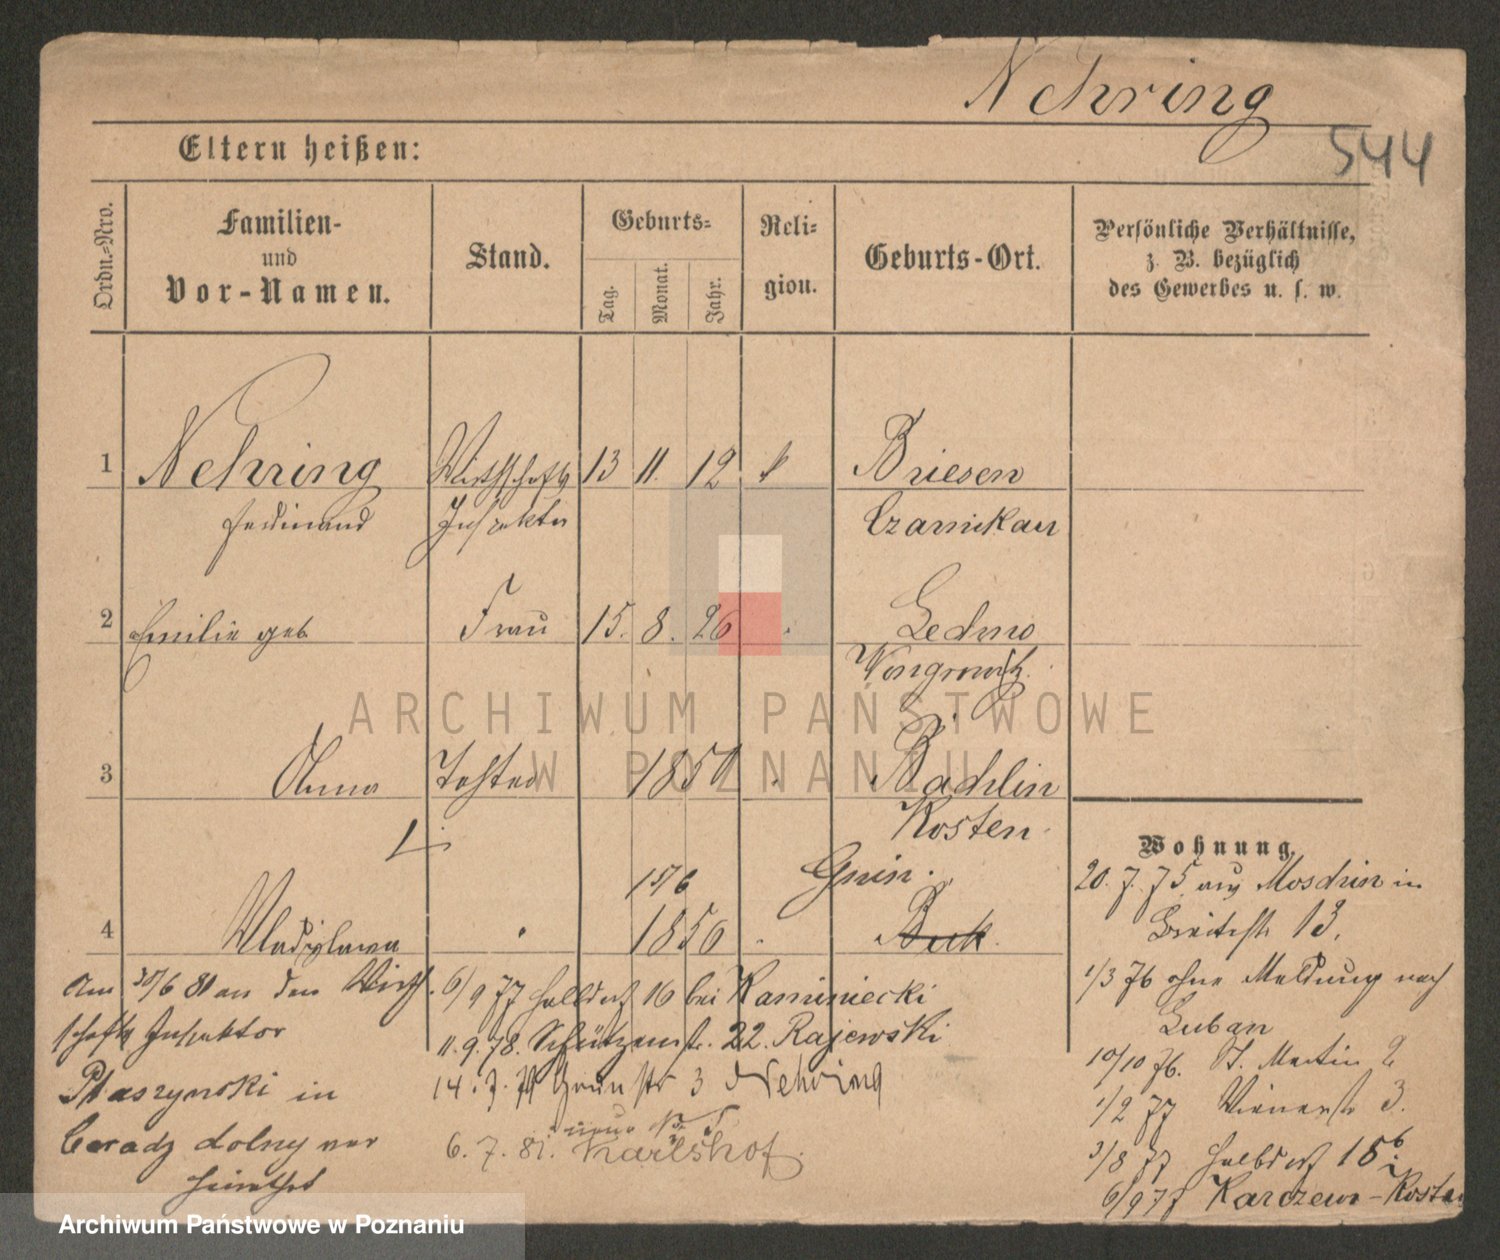 Nehring
544
Eltern heißen:
Ordn.-Nro.
Familien-
und
Vor-Namen.
Stand.
Geburts-
Tag.
Monat.
Jahr.
Reli-
gion.
Geburts-Ort.
Persönliche Verhältnisse,
z. B. bezüglich
des Gewerbes u. s. w.
1 Nehring Wirthschafts 13 11. 12 k Briesen
Ferdinand Inspektor Czarnikau
2 Emilie geb Frau 15. 8. 26 Ledno
Wongrowitz
3 Anna Tochter 185 Kosten
15/6 Gnin.
4 Wladislawa 1856 Buk
Wohnung.
20. 7. 75 aus Mosdrin in
Breitestr 13.
1/3 76 ohne Meldung nach
Luban
10/10 76. St. Martin 2
1/2 77 Wienerstr 3.
3/8 77 Halbdorf 15b
6/9 77 Karczewo-Kosten
Am 30/6 81 an den Wirth
schafts Inspektor
Ptaszynski in
Ceradz dolny ver
heirathet
6/9 77 Halbdorf 16 bei Kaminiecki
11. 9. 78. Schützenstr. 22. Rajewski
14. 7. 79 Grünstr 3 Nehring
neue No 5
6. 7. 81. Karlshof.
ARCHIWUM PAŃSTWOWE
W POZNANIU
Archiwum Państwowe w Poznaniu